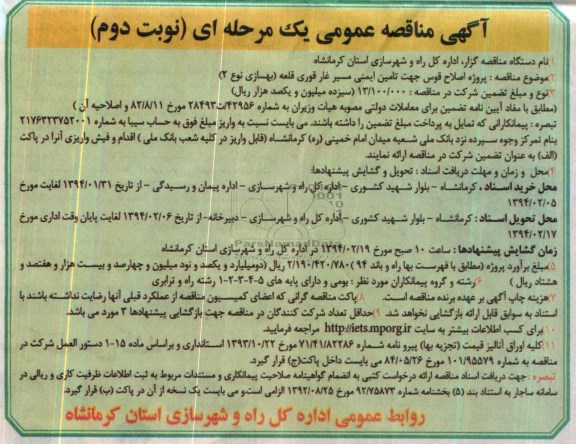 آگهی مناقصه عمومی یک مرحله ای (نوبت دوم)
۱نام دستگاه مناقصه گزار: اداره کل راه و شهرسازی استان کرمانشاه
۲موضوع مناقصه : پروژه اصلاح قوس جهت تامین ایمنی مسیر غار قوری قلعه (بهسازی نوع ۲)
۳نوع و مبلغ تضمین شرکت در مناقصه : ۱۳/۱۰۰/۰۰۰ (سیزده میلیون و یکصد هزار ریال)
(مطابق با مفاد آیین نامه تضمین برای معاملات دولتی مصوبه هیات وزیران به شماره ۴۲۹۵۶/ت۲۸۴۹۳ مورخ ۸۲/۸/۱۱ و اصلاحیه آن )
تبصره : پیمانکارانی که تمایل به پرداخت مبلغ تضمین را داشته باشند. می بایست نسبت به واریز مبلغ فوق به حساب سیبا به شماره ۲۱۷۶۳۲۳۷۵۲۰۰۱
بنام تمرکز وجوه سپرده نزد بانک ملی شعبه میدان امام خمینی (ره) کرمانشاه (قابل واریز در کلیه شعب بانک ملی ) اقدام و فیش واریزی آنرا در پاکت
(الف) به عنوان تضمین شرکت در مناقصه ارائه نمایند.
۴محل و زمان و مهلت دریافت اسناد : تحویل و گشایش پیشنهادها:
محل خرید اسناد : کرمانشاه - بلوار شهید کشوری - اداره کل راه و شهرسازی - اداره پیمان و رسیدگی - از تاریخ ۱۳۹۴/۰۱/۳۱ لغایت مورخ
۱۳۹۴/۰۲/۰۵
محل تحویل اسناد : کرمانشاه - بلوار شهید کشوری - اداره کل راه و شهرسازی - دبیرخانه- از تاریخ ۱۳۹۴/۰۲/۰۶ لغایت پایان وقت اداری مورخ
۱۳۹۴/۰۲/۱۷
زمان گشایش پیشنهادها : ساعت ۱۰ صبح مورخ ۱۳۹۴/۰۲/۱۹ در اداره کل راه و شهرسازی استان کرمانشاه
۵مبلغ برآورد پروژه (مطابق با فهرست بها راه و باند ۹۴ ) ۲/۱۹۰/۴۲۰/۷۸۰ ریال (دومیلیارد و یکصد و نود میلیون و چهارصد و بیست هزار و هفتصد و
هشتاد ریال ) ۶رشته و گروه پیمانکاران مورد نظر : بومی و دارای پایه های ۵-۴-۳-۲-۱ رشته راه و ترابری
۷هزینه چاپ آگهی بر عهده برنده مناقصه است. ۸پاکت مناقصه گرانی که اعضای کمیسیون مناقصه از عملکرد قبلی آنها رضایت نداشته باشند با
استناد به سوابق قابل ارائه بازگشایی نخواهد شد. ۹حداقل تعداد شرکت کنندگان در مناقصه جهت بازگشایی پیشنهادها ۳ مورد می باشد.
۱۰برای کسب اطلاعات بیشتر به سایت http://iets.mporg.ir مراجعه فرمایید.
۱۱کلیه اوراق آنالیز قیمت (تجزیه بها) پیرو نامه شماره ۷۱/۴۱/۸۲۲۸۶ مورخ ۱۳۹۳/۱۰/۲۲ استانداری و براساس ماده ۱۵-۱ دستور العمل شرکت در
مناقصه به شماره ۱۰۱/۹۵۵۷۹ مورخ ۸۴/۰۵/۲۶ می بایست داخل پاکت(ج) قرار گیرد.
تبصره : جهت دریافت اسناد مناقصه ارائه درخواست کتبی به انضمام گواهینامه صلاحیت پیمانکاری و مستندات مربوط به ثبت اطلاعات ظرفیت کاری و ریالی در
سامانه ساجار به استناد بند (۵) بخشنامه شماره ۹۲/۷۵۸۷۳ مورخ ۱۳۹۲/۰۸/۲۵ الزامی است و می بایست یک نسخه از آن در پاکت (ب) قرار گیرد.
روابط عمومی اداره کل راه و شهرسازی استان کرمانشاه